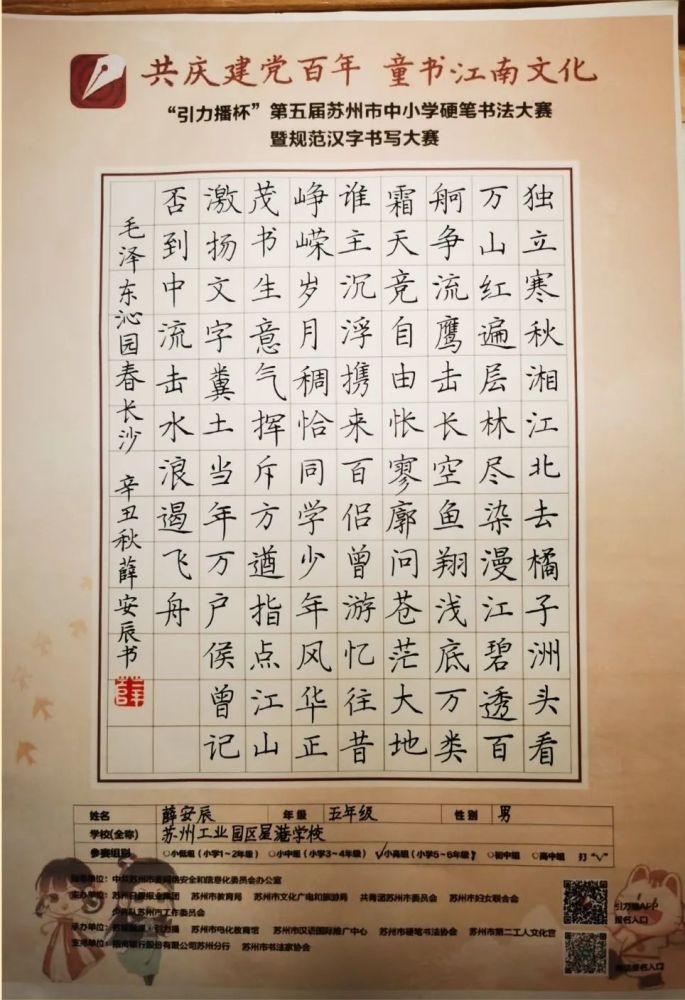 共庆建党百年 童书江南文化
“引力播杯”第五届苏州市中小学硬笔书法大赛
暨规范汉字书写大赛
独立寒秋湘江北去橘子洲头看
万山红遍层林尽染漫江碧透百
舸争流鹰击长空鱼翔浅底万类
霜天竞自由怅寥廓问苍茫大地
谁主沉浮携来百侣曾游忆往昔
峥嵘岁月稠恰同学少年风华正
茂书生意气挥斥方遒指点江山
激扬文字粪土当年万户侯曾记
否到中流击水浪遏飞舟
毛泽东沁园春长沙 辛丑秋薛安辰书
姓名 薛安辰 年级 五年级 性别 男
学校(全称) 苏州工业园区星港学校
参赛组别 ○小低组(小学1~2年级) ○小中组(小学3~4年级) ✓小高组(小学5~6年级) ○初中组 ○高中组 打“√”
指导单位：中共苏州市委网络安全和信息化委员会办公室
主办单位：苏州日报业集团 苏州市教育局 苏州市文化广电和旅游局 共青团苏州市委员会 苏州市妇女联合会
少先队苏州市工作委员会
承办单位：引力播 苏州市电化教育馆 苏州市汉语国际推广中心 苏州市硬笔书法协会 苏州市第二工人文化宫
招商银行股份有限公司苏州分行 苏州市书法家协会
引力播APP
报名入口
报名入口